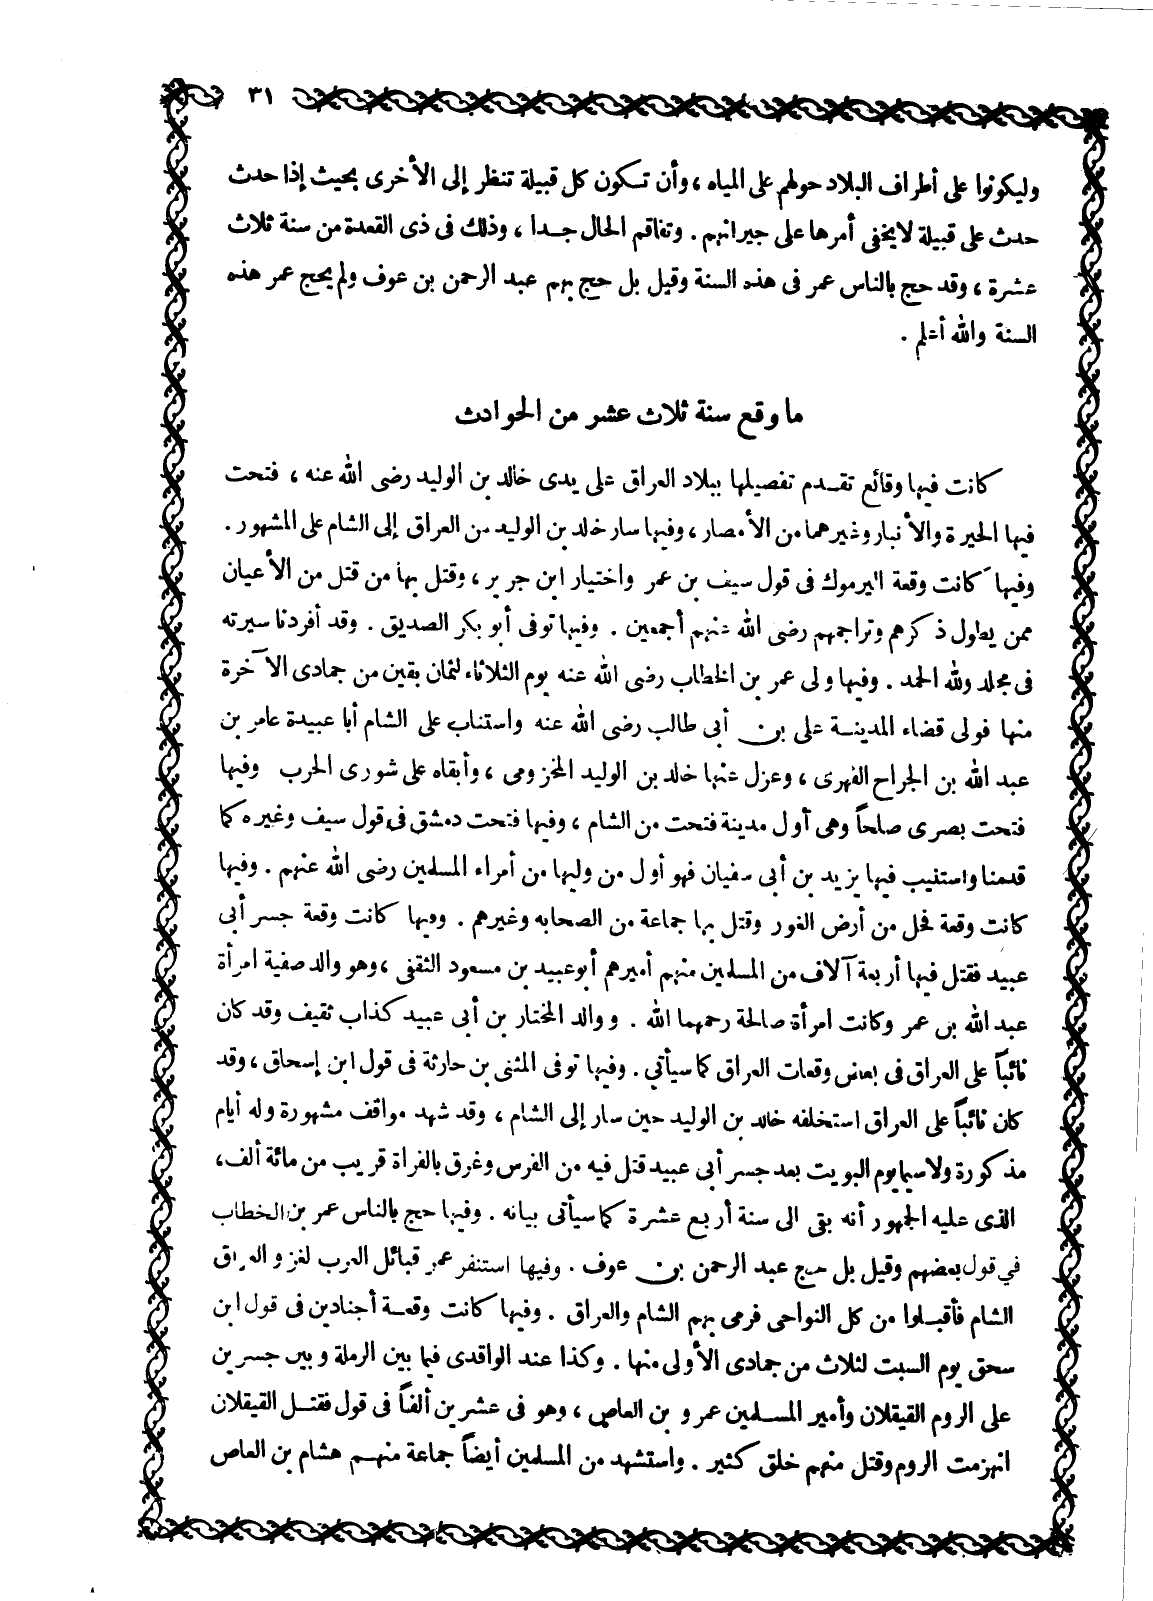 ٣١
وليكونوا على أطراف البلاد حولهم على المياه ، وأن تسكون كل قبيلة تنظر إلى الأخرى بحيث إذا حدث
حدث على قبيلة لايخفى أمرها على جيرانهم . وتفاقم الحال جدا ، وذلك فى ذى القعدة من سنة ثلاث
عشرة ، وقد حج بالناس عمر فى هذه السنة وقيل بل حج بهم عبد الرحمن بن عوف ولم يحج عمر هذه
السنة والله أعلم .
ما وقع سنة ثلاث عشر من الحوادث
كانت فيها وقائع تقدم تفصيلها ببلاد العراق على يدى خالد بن الوليد رضى الله عنه ، فتحت
فيها الحيرة والأنبار وغيرهما من الأمصار ، وفيها سار خالد بن الوليد من العراق إلى الشام على المشهور .
وفيها كانت وقعة اليرموك فى قول سيف بن عمر واختيار ابن جرير ، وقتل بها من قتل من الأعيان
ممن يطول ذكرهم وتراجمهم رضى الله عنهم أجمعين . وفيها توفى أبو بكر الصديق . وقد أفردنا سيرته
فى مجلد ولله الحمد . وفيها ولى عمر بن الخطاب رضى الله عنه يوم الثلاثاء لثمان بقين من جمادى الآخرة
منها فولى قضاء المدينة على بن أبى طالب رضى الله عنه واستناب على الشام أبا عبيدة عامر بن
عبد الله بن الجراح الفهرى ، وعزل عنها خالد بن الوليد المخزومى ، وأبقاه على شورى الحرب وفيها
فتحت بصرى صلحاً وهى أول مدينة فتحت من الشام ، وفيها فتحت دمشق فى قول سيف وغيره كما
قدمنا واستنيب فيها يزيد بن أبى سفيان فهو أول من وليها من أمراء المسلمين رضى الله عنهم . وفيها
كانت وقعة فحل من أرض الغور وقتل بها جماعة من الصحابه وغيرهم . وفيها كانت وقعة جسر أبى
عبيد فقتل فيها أربعة آلاف من المسلمين منهم أميرهم أبو عبيد بن مسعود الثقفى ، وهو والد صفية امرأة
عبد الله بن عمر وكانت امرأة صالحة رحمهما الله . ووالد المختار بن أبى عبيد كذاب ثقيف وقد كان
نائباً على العراق فى بعض وقعات العراق كما سيأتى . وفيها توفى المثنى بن حارثة فى قول ابن إسحاق ، وقد
كان نائباً على العراق استخلفه خالد بن الوليد حين سار إلى الشام ، وقد شهد مواقف مشهورة وله أيام
مذكورة ولاسيما يوم البويت بعد جسر أبى عبيد قتل فيه من الفرس وغرق بالفراة قريب من مائة ألف،
الذى عليه الجمهور أنه بقى الى سنة أربع عشرة كما سيأتى بيانه . وفيها حج بالناس عمر بن الخطاب
في قول بعضهم وقيل بل حج عبد الرحمن بن عوف . وفيها استنفر عمر قبائل العرب لغزو العراق
الشام فأقبلوا من كل النواحى فرمى بهم الشام والعراق . وفيها كانت وقعة أجنادين فى قول ابن
سحق يوم السبت لثلاث من جمادى الأولى منها . وكذا عند الواقدى فيما بين الرملة وبين جسرين
على الروم القيقلان وأمير المسلمين عمرو بن العاص ، وهو فى عشرين ألفاً فى قول فقتل القيقلان
انهزمت الروم وقتل منهم خلق كثير . واستشهد من المسلمين أيضاً جماعة منهم هشام بن العاص